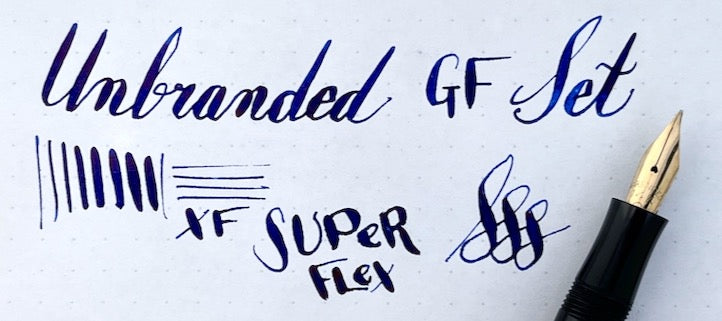 Unbranded GF Set
XF SUPeR
FLeX